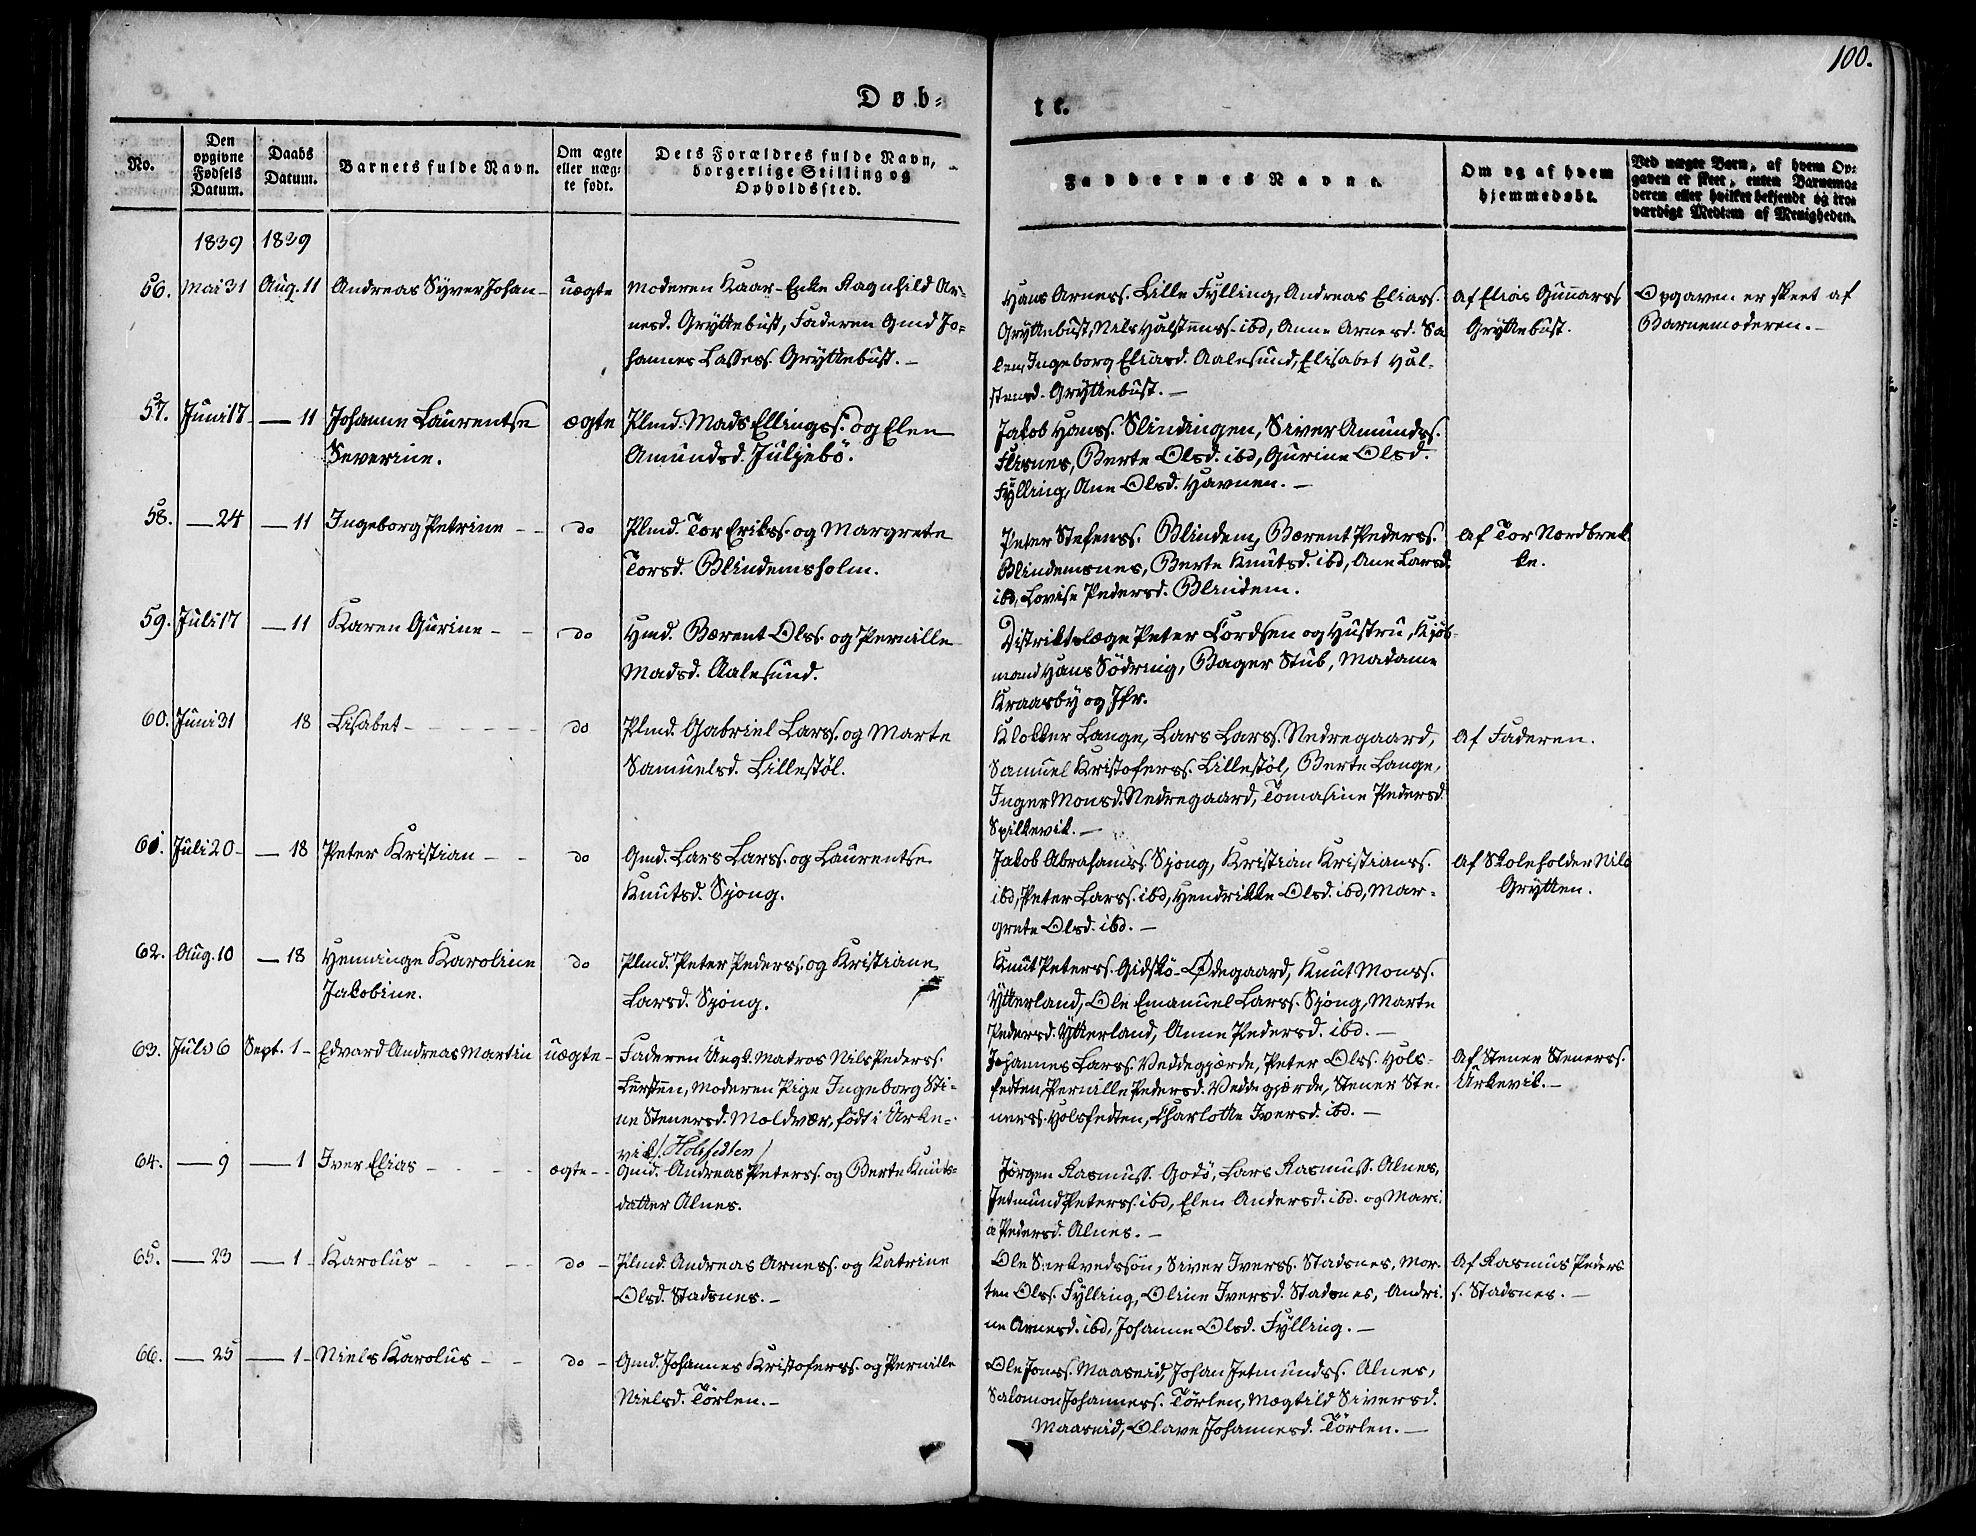 100.
Døb-
te.
No.
Den opgivne Fødsels Datum.
Daabs Datum.
Barnets fulde Navn.
Om ægte eller uægte født.
Dets Forældres fulde Navn, borgerlige Stilling og Opholdssted.
Faddernes Navne.
Om og af hvem hjemmedøbt.
Ved uægte Barn, af hvem Opgaven er skeet, enten Barnemoderen eller hvilket bekjendt og troværdigt Medlem af Menigheden.
1839 1839
56. Mai 31 Aug. 11 Andreas Syver Johan- uægte
Moderen Kaar-Enke Ragnhild Ar-
nesd. Gryttebust, Faderen Gmd Jo-
hannes Lassess. Gryttebust. -
Hans Arness. Lille Fylling, Andreas Eliass.
Gryttebust, Nils Halstenss. ibd, Anne Arnesd. Sa
len, Ingeborg Eliasd. Aalesund, Elisabet Hal-
stensd. Gryttebust. -
Af Elias Gunnarss
Gryttebust.
Opgaven er skeet af
Barnemoderen. -
57. Juni 17 - 11 Johanne Laurentse
Severine.
ægte
Plmd. Mads Ellingss. og Elen
Amundsd. Juljebö.
Jakob Hanss. Slindingen, Siver Amundss.
Flisnes, Berte Olsd. ibd, Gurine Olsd.
Fylling, Ane Olsd. Havnen. -
58. - 24 - 11 Ingeborg Petrine - - do
Plmd. Tor Erikss. og Margrete
Torsd. Blindemsholm.
Peter Stefenss. Blindem, Bærent Pederss.
Blindemsnes, Berte Knutsd. ibd, Ane Larsd.
ibd, Lovise Pedersd. Blindem.
Af Tor Nordbrek
ke.
59. Juli 17 - 11 Karen Gurine - - do
Hmd. Bærent Olss. og Pernille
Madsd. Aalesund.
Distriktslæge Peter Cordsen og Hustru, Kjöb-
mand Hans Södring, Bager Stub, Madame
Kraasby og Jfr.
60. Juni 31 18 Lisabet - - - - - do
Plmd. Gabriel Larss. og Marte
Samuelsd. Lillestöl.
Klokker Lange, Lars Larss. Nedregaard,
Samuel Kristoferss. Lillestöl, Berte Lange,
Inger Monsd. Nedregaard, Tomasine Pedersd.
Spilkevik. -
Af Faderen.
61. Juli 20 - - 18 Peter Kristian - - do
Gmd. Lars Larss. og Laurentse
Knutsd. Sjong.
Jakob Abrahamss Sjong, Kristian Kristianss.
ibd, Peter Larss. ibd, Hendrikke Olsd. ibd, Mar-
grete Olsd. ibd. -
Af Skoleholder Nils
Grytten.
62. Aug. 10 - 18 Henninge Karoline
Jakobine.
do
Plmd. Peter Pederss. og Kristiane
Larsd. Sjong.
Knut Peterss. Gidskö-Ødegaard, Knut Monss.
Ytterland, Ole Emanuel Larss. Sjong, Marte
Pedersd. Ytterland, Anne Pedersd. ibd. -
63. Juli 6 Sept. 1 - Edvard Andreas Martin uægte -
Faderen Ungk. Matros Nils Pederss.
moderen Pige Ingeborg Sti-
ne Stenersd. Moldvær, födt i Urke-
vik / Holsfedten /
Johannes Larss. Veddegjærde, Peter Olss. Hols-
fedten, Pernille Pedersd. Veddegjærde, Stener Ste-
nerss. Holsfedten, Charlotte Iversd. ibd. -
Af Stener Stenerss.
Urkevik. -
64. - 9 - 1 Iver Elias - - - - ægte - -
Gmd. Andreas Peterss. og Berte Knuts-
datter Alnes.
Jörgen Rasmuss. Godö, Lars Rasmuss. Alnes,
Jetmund Peterss. ibd, Elen Andersd. ibd. og Mari
a Pedersd. Alnes. -
65. - 23 - 1 - Karolus - - - - do -
Plmd. Andreas Arness. og Katrine
Olsd. Stadsnes. -
Ole Siver Iverss. Stadsnes, Mor-
ten Olss. Fylling, Oline Iversd. Stadsnes, Andri-
ne Arnesd. ibd, Johanne Olsd. Fylling. -
Af Rasmus Peders
s. Stadsnes. -
66. - 25 - 1 - Niels Karolus - - do -
Gmd. Johannes Kristoferss. og Pernille
Nielsd. Törlen. -
Ole Jonss. Maaseid, Johan Jetmundss. Alnes,
Salomon Johanness. Törlen, Mægtild Siversd.
Maaseid, Olave Johannesd. Törlen. -